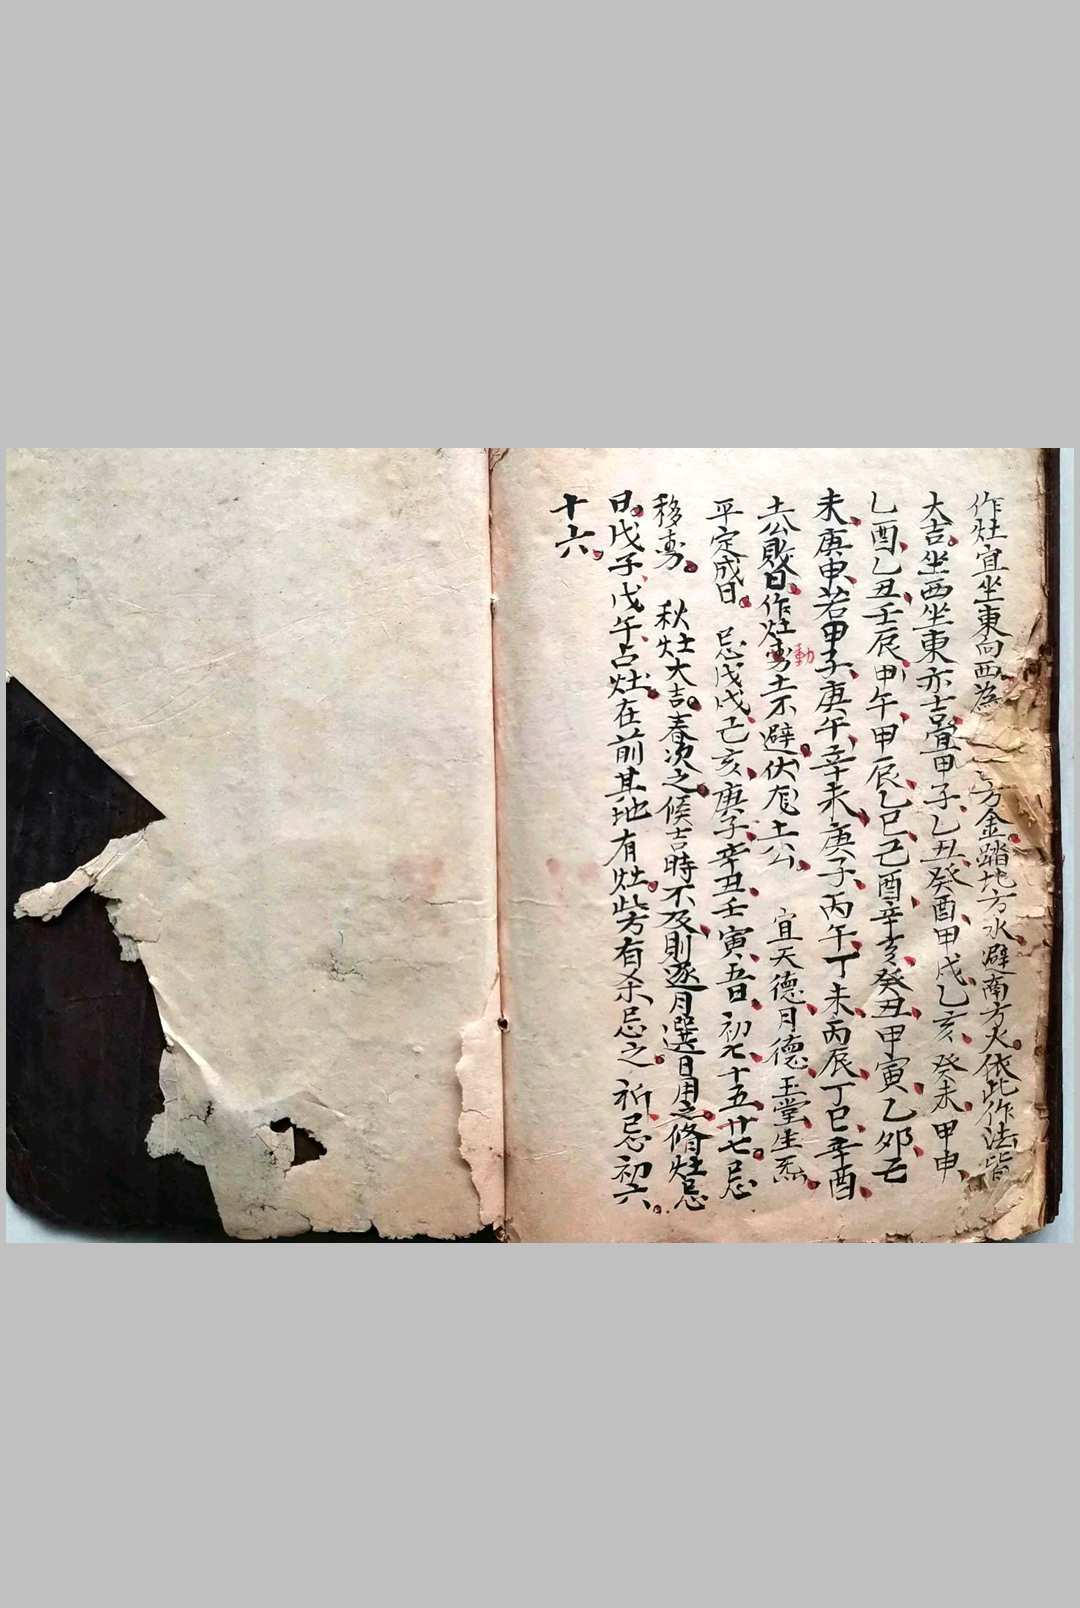 作灶宜坐東向西為方金踏地方水避南方火依此作法皆
大吉坐西坐東亦吉宜甲子乙丑癸酉甲戌乙亥癸未甲申
乙酉乙丑壬辰甲午甲辰乙巳己酉辛亥癸丑甲寅乙夘
未庚申若甲子庚午辛未庚子丙午丁未丙辰丁巳辛酉
土公敗日作灶動土不避伏尨土公 宜天德月德玉堂生炁
平定成日 忌戊戌己亥庚子辛丑壬寅吾日初七十五廿七忌
移 秋灶大吉春次之候吉時不及則逐月選日用之修灶忌
日戊子戊午占灶在前其地有灶此方有杀忌之 祈忌初六
十六